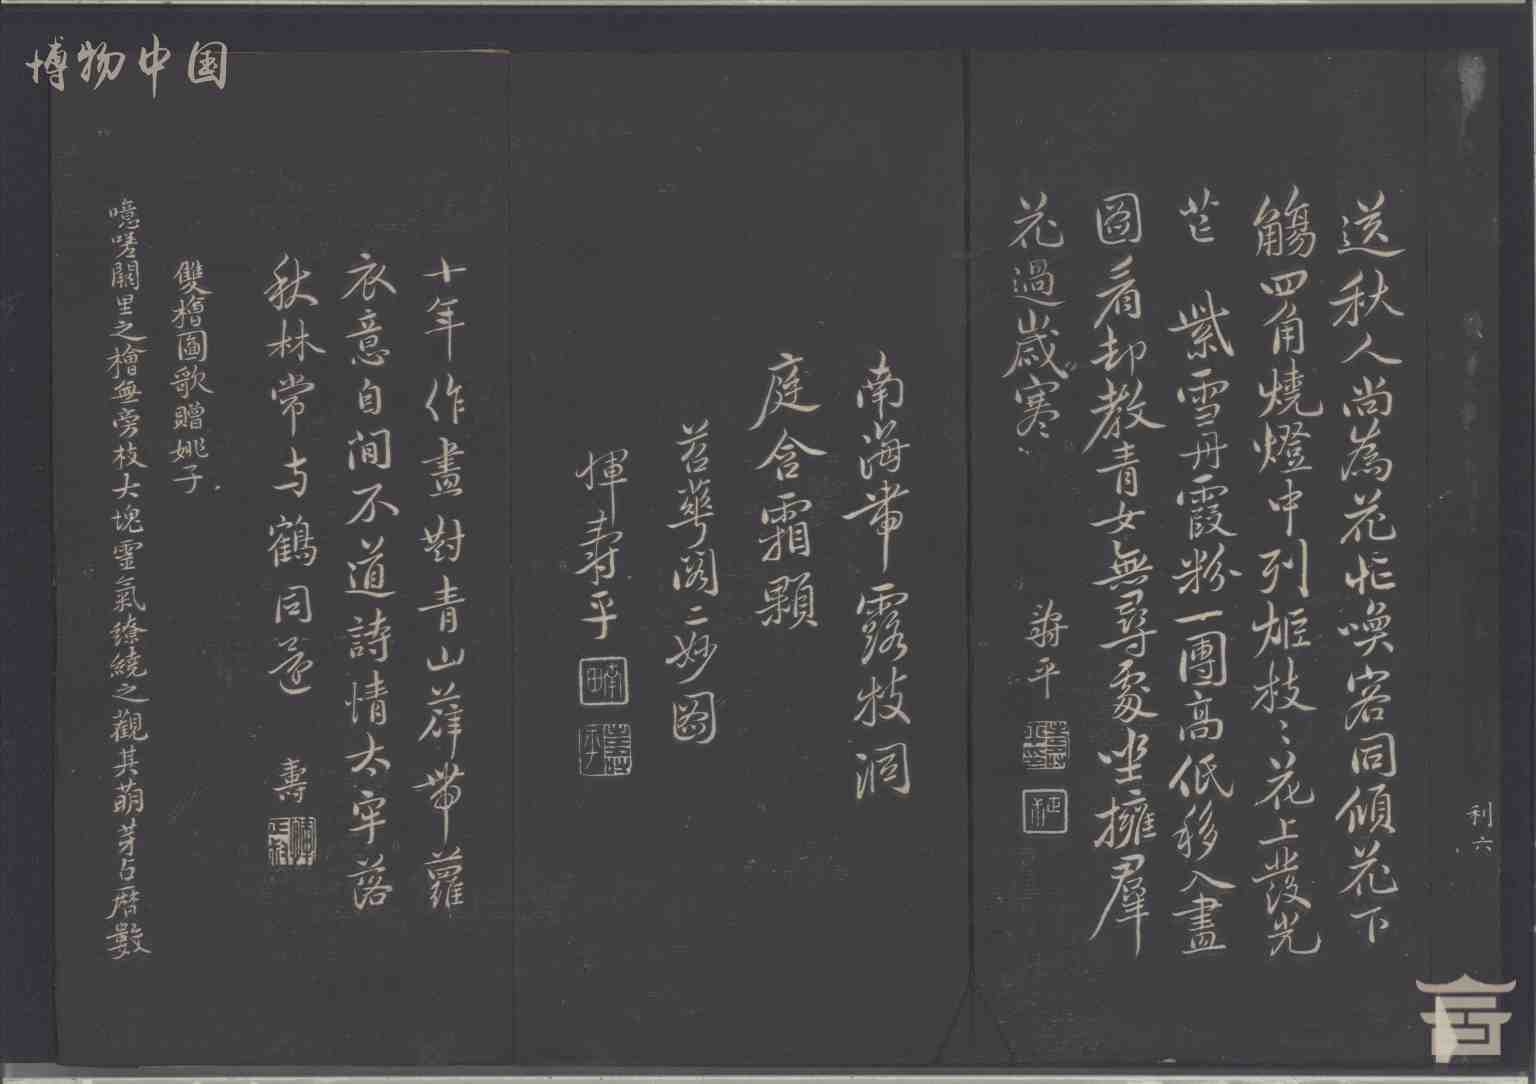 博物中国
利六
送秋人尚為花忙喚客同傾花下
觴四角燒燈中列姬枝〻花上發光
芒 紫雪丹霞粉一團高低移入畫
圖看却教青女無尋處坐擁羣
花過歲寒
壽平
南海帶露枝洞
庭含霜顆
苕華閣二妙圖
惲壽平
南田
壽平
十年作畫對青山薜帶蘿
衣意自閒不道詩情太牢落
秋林常与鶴同還
壽
雙檜圖歌贈姚子
噫嗟闕里之檜無旁枝大塊靈氣繚繞之觀其萌芽占曆數